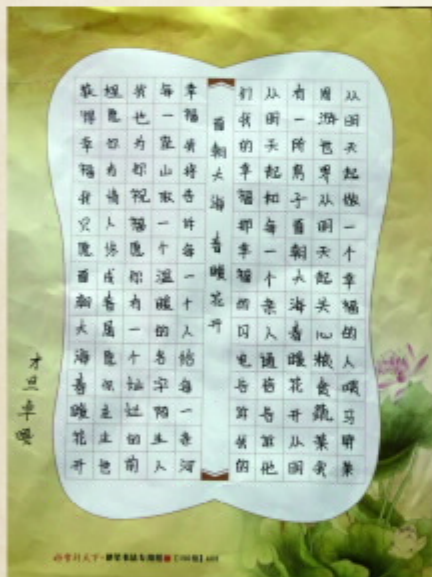 从明天起做一个幸福的人喂马劈柴
周游世界从明天起关心粮食蔬菜我
有一所房子面朝大海春暖花开从明
从明天起和每一个亲人通信告诉他
们我的幸福那幸福的闪电告诉我的
面朝大海 春暖花开
幸福我将告诉每一个人给每一条河
每一座山取一个温暖的名字陌生人
我也为你祝福愿你有一个灿烂的前
程愿你有情人终成眷属愿你在尘世
获得幸福我只愿面朝大海春暖花开
才旦卓嘎
硬笔书法专用纸